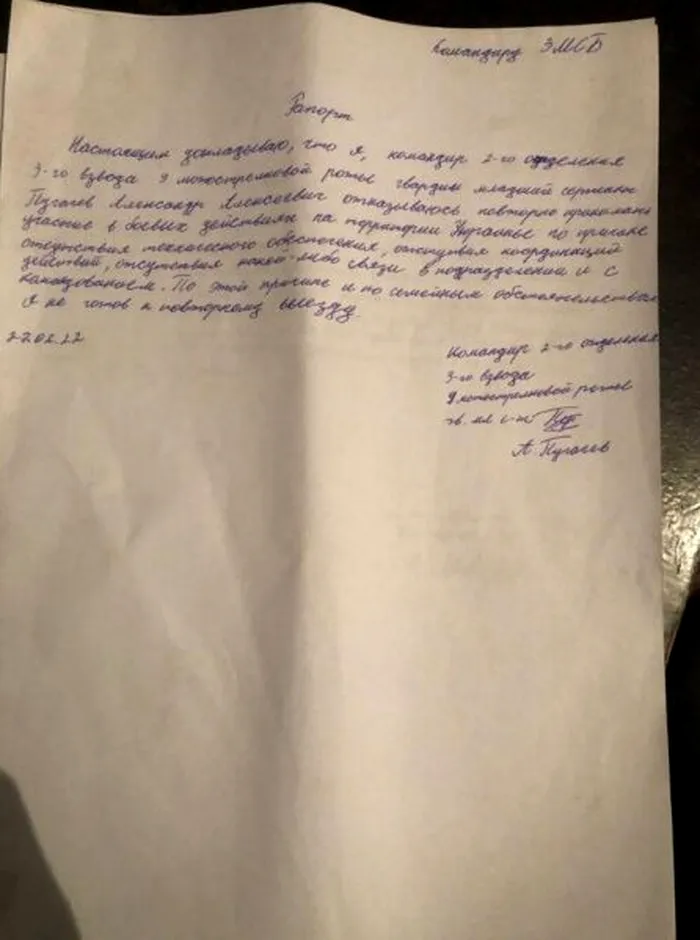 Командиру 3МСБ
Рапорт
Настоящим докладываю, что я, командир 2-го отделения
3-го взвода 9 мотострелковой роты гвардии младший сержант
Пугачев Александр Алексеевич отказываюсь повторно принимать
участие в боевых действиях на территории Украины по причине
отсутствия технического обеспечения, отсутствия координаций
действий, отсутствия какой-либо связи в подразделении и с
командованием. По этой причине и по семейным обстоятельствам
я не готов к повторному выезду.
Командир 2-го отделения
3-го взвода
9 мотострелковой роты
гв. мл с-т
А. Пугачев